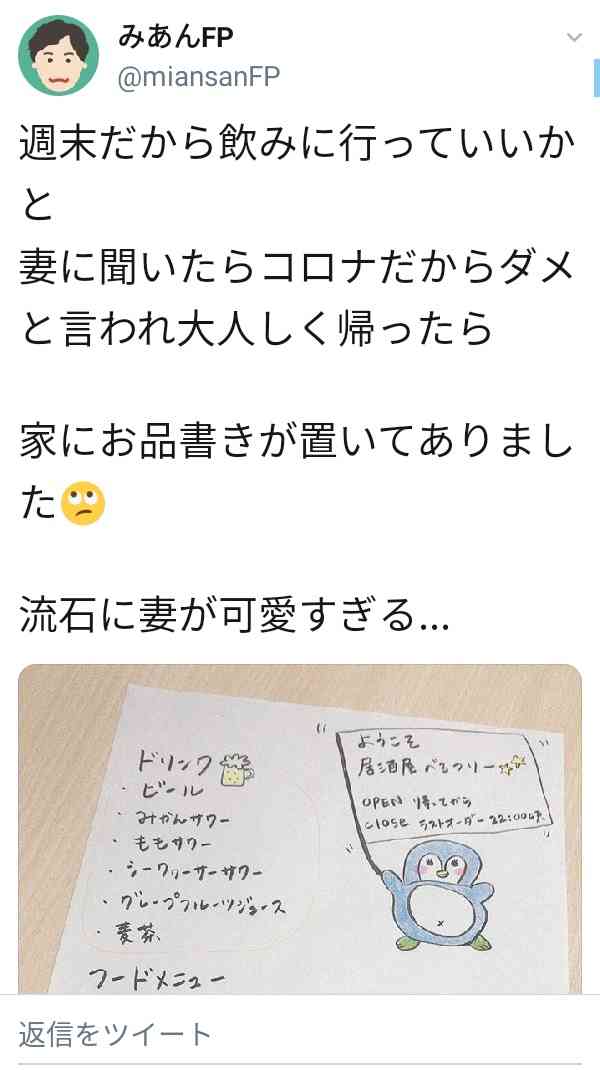 みあんFP
@miansanFP
週末だから飲みに行っていいか
と
妻に聞いたらコロナだからダメ
と言われ大人しく帰ったら
家にお品書きが置いてありまし
た🙄
流石に妻が可愛すぎる...
ようこそ
居酒屋
OPEN 帰ってから
CLOSE ラストオーダー 22:00
ドリンク
・ビール
・みかんサワー
・ももサワー
・シークワーサーサワー
・グレープフルーツジュース
・麦茶
フードメニュー
返信をツイート